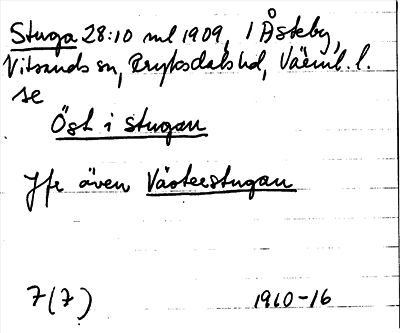 Stuga 28:10 ml 1909, i Åsteby,
Vitsands sn, Fryksdals hd, Värml. l.
se
Öst i stugan
Jfr även Västerstugan
7(7) 1910-16